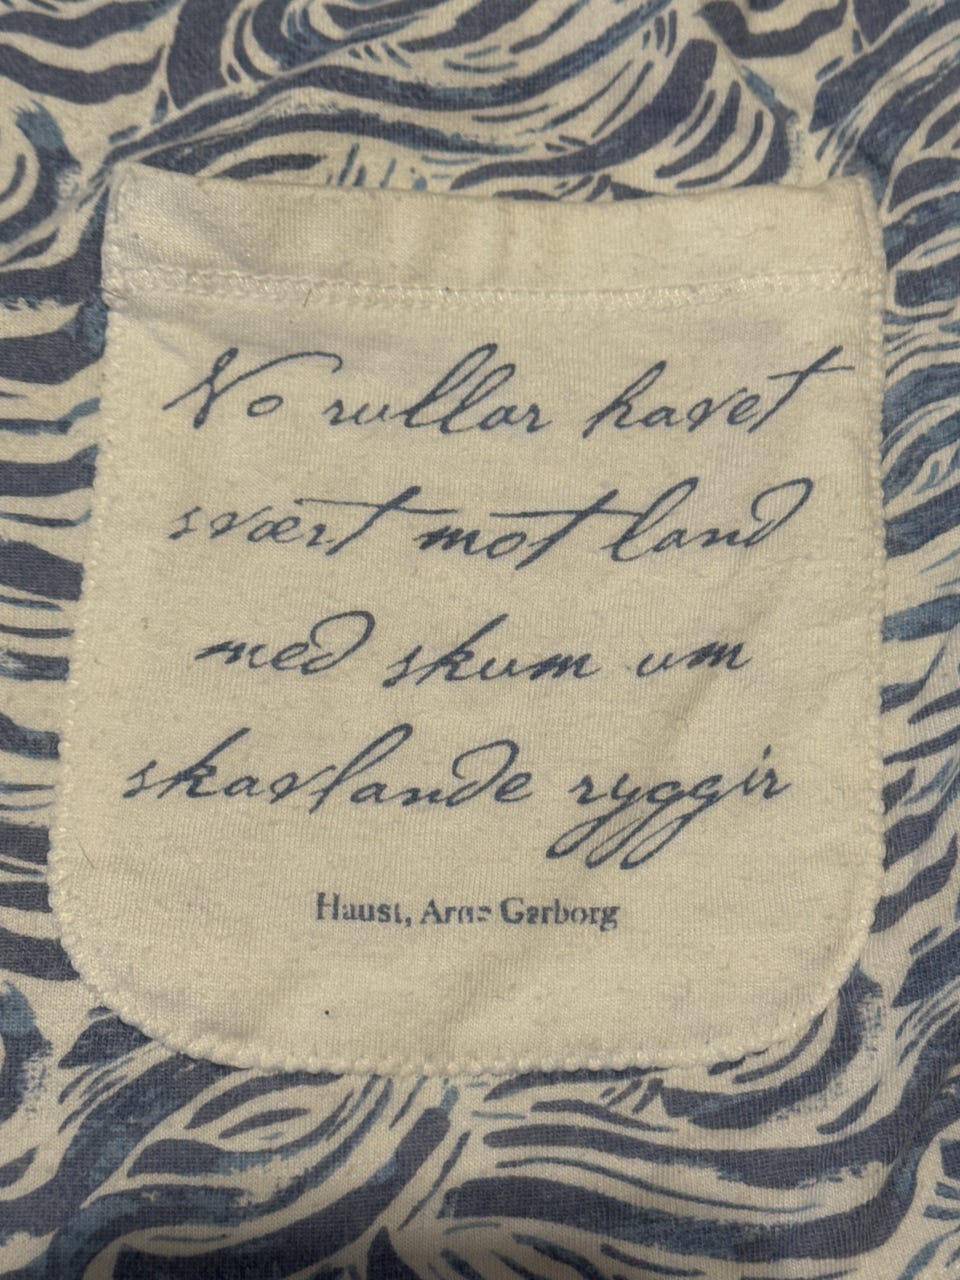 No rullar havet
svært mot land
med skum um
skavlande ryggir
Haust, Arne Garborg